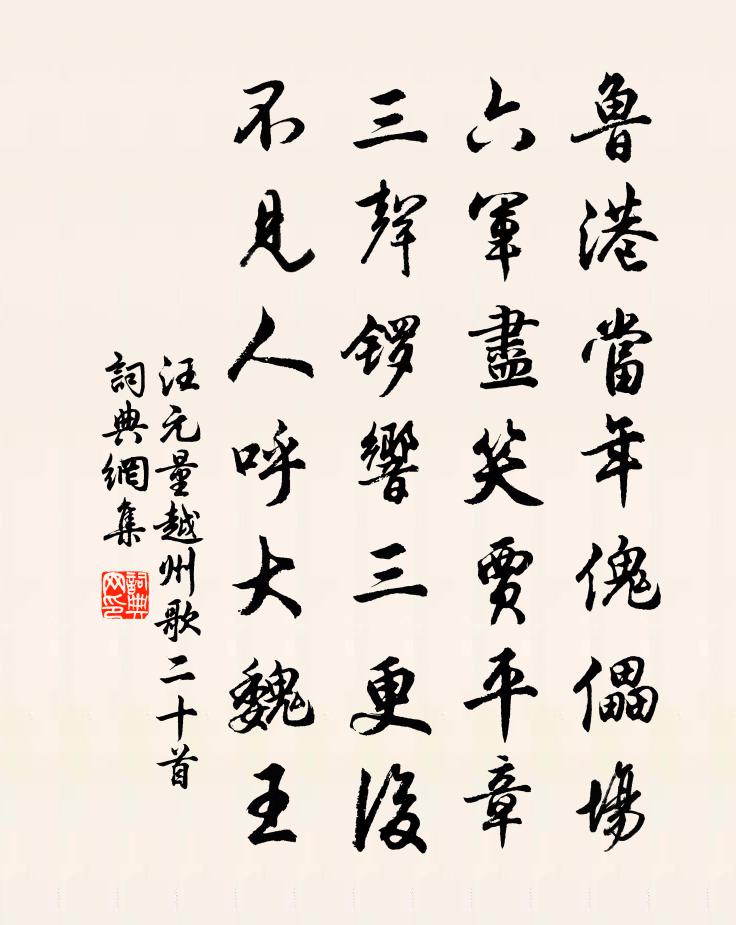 魯港當年傀儡場
六軍盡笑賈平章
三聲鑼響三更後
不見人呼大魏王
汪元量越州歌二十首
詞典網集
詞典网印